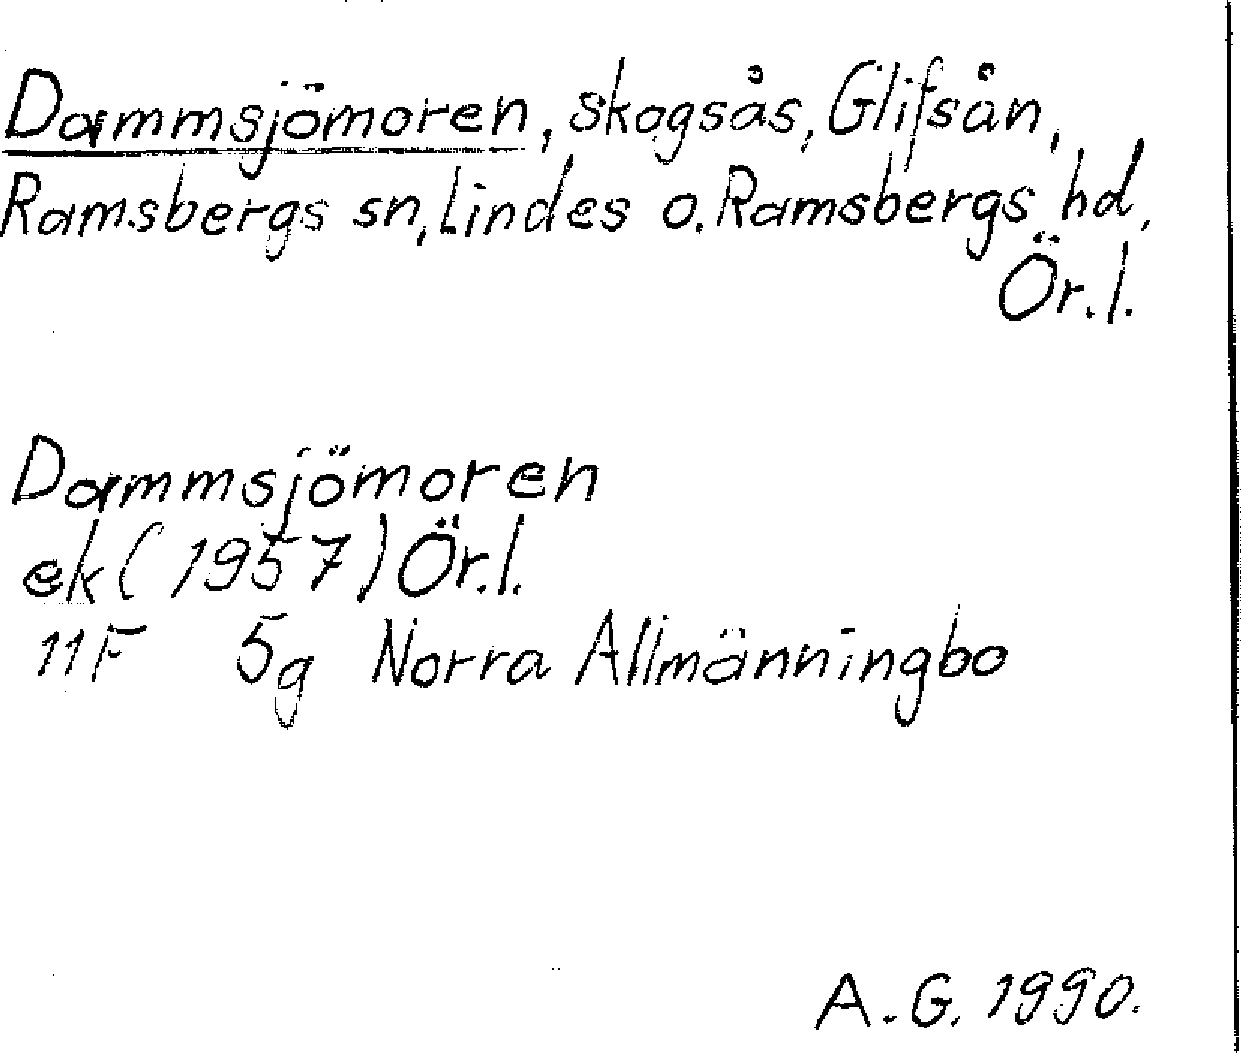 Dammsjömoren, skogsås, Glifsån,
Ramsbergs sn, Lindes o. Ramsbergs hd,
Ör. l.
Dammsjömoren
ek (1957) Ör. l.
11F 5g Norra Allmänningbo
A. G. 1990.